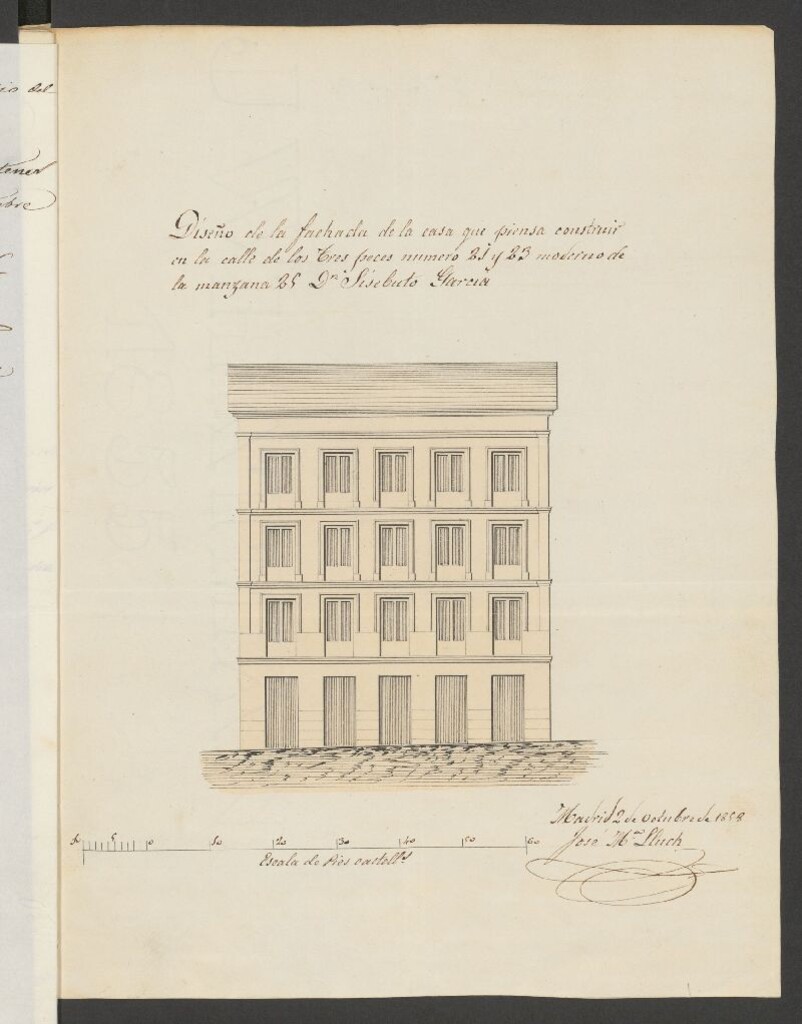 Diseño de la fachada de la casa que piensa construir
en la calle de los Tres peces numero 21 y 23 moderno de
la manzana 25 Dn. Sisebuto Garcia
Madrid 2 de Octubre de 1858
José Ma. Lluch
10 5 0 10 20 30 40 50 60
Escala de Pies castells
tener